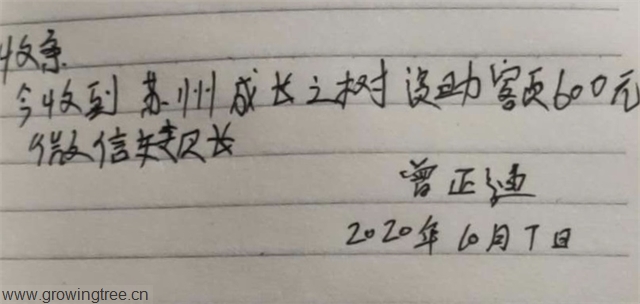 收条
今收到 苏州成长之树 资助 600元
微信转账
曾正
2020年6月7日
www.growingtree.cn